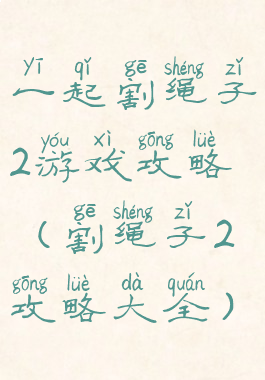 yī qǐ gē shéng zǐ
一起割绳子
yóu xì gōng lüè
2游戏攻略
gē shéng zǐ
(割绳子2
gōng lüè dà quán
攻略大全)